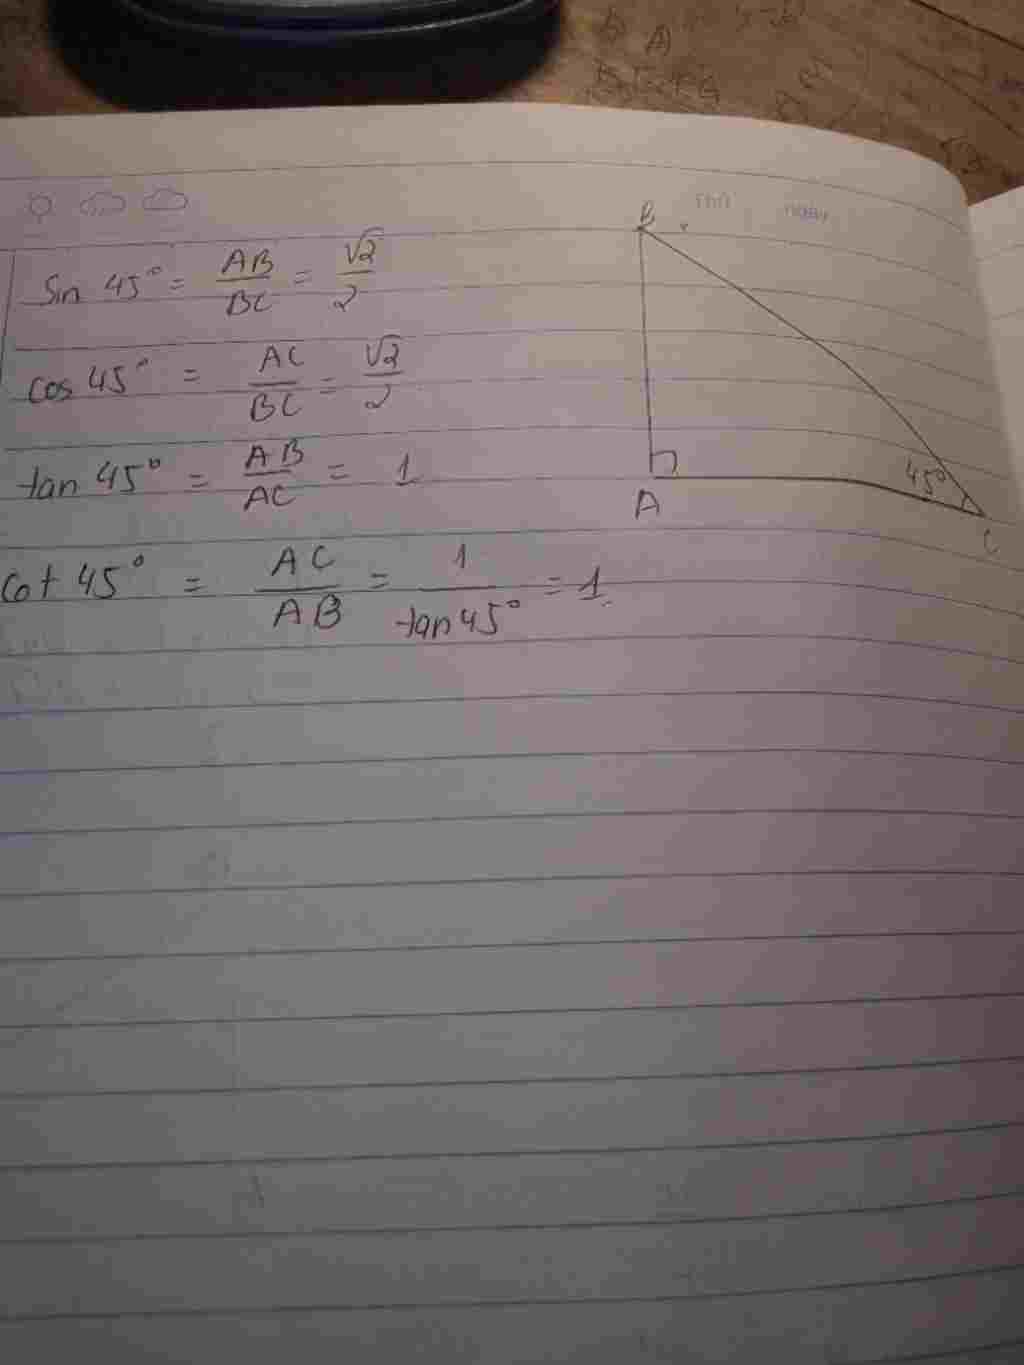 Thứ ngày
B
sin 45° = AB/BC = √2/2
cos 45° = AC/BC = √2/2
tan 45° = AB/AC = 1
A
45°
C
cot 45° = AC/AB = 1/tan 45° = 1